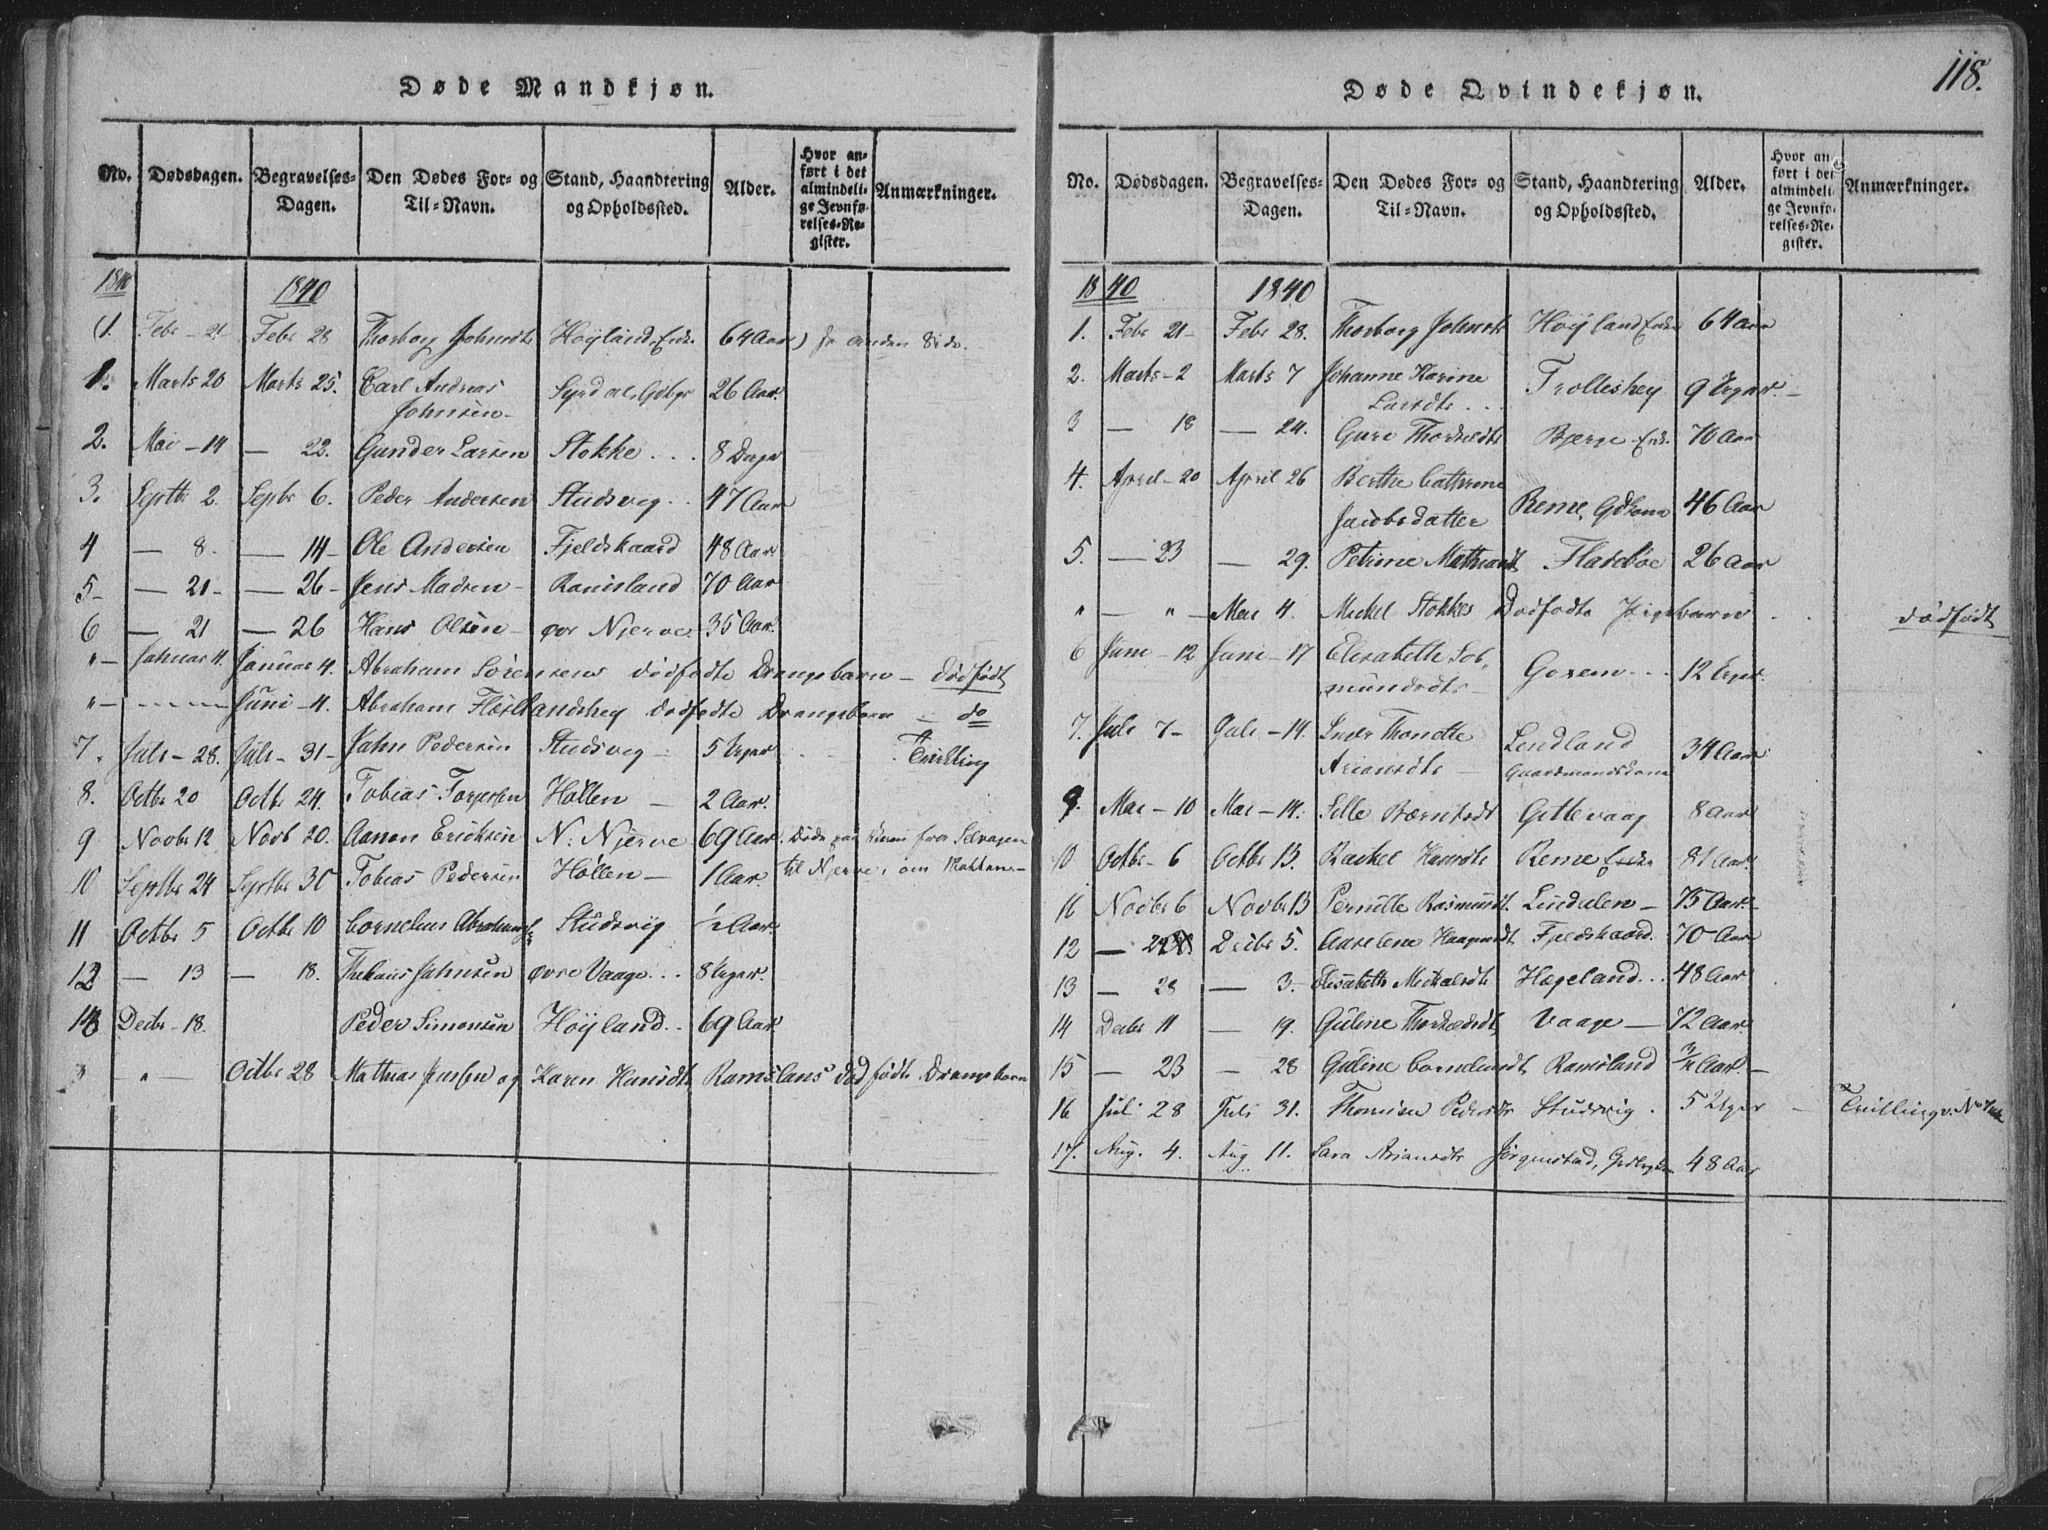 118.
Døde Mandkjøn.
No. Dødsdagen. Begravelses-Dagen. Den Dødes For- og Til-Navn. Stand, Haandtering og Opholdssted. Alder. Hvor anført i det almindelige Jevnførelses-Register. Anmærkninger.
1840 1840
(1. Febr 21 Febr 28 Thorborg Johnsdtr Høyland, Enke 64 Aar) se anden Side.
1. Marts 20 Marts 25. Carl Andreas 26 Aar.
Johnsen
2. Mai 14 — 22. Gunder Larsen Stokke 8 Dage
3. Septbr 2. Septbr 6. Peder Andersen Studsvig 47 Aar
4 — 8. — 14 Ole Andersen Fjeldskaard 48 Aar
5 — 21 — 26 Jens Madsen Ramsland 70 Aar
6 — 21 — 26 Hans Olsen øvr Njerve 35 Aar.
" Januar 4. Januar 4. Abraham Sörensens dödfödte Drengebarn — dödfödt
" — Juni 4. Abraham dödfødte Drengebarn — do
7. Juli 28. Juli 31 Jahn Pedersen Studsvig 5 Uger Tvilling
8. Octbr 20 Octbr 24. Tobias Torgersen Höllen 2 Aar.
9 Novbr 12 Novb 20. Aanen Ericksen N. Njerve 69 Aar. Døde paa fra
10 Septbr 24 Septbr 30 Tobias Pedersen Höllen 1 Aar. til Njerve, om Natten
11 Octbr 5 Octbr 10 Cornelius Studsvig ½ Aar.
12 — 13 — 18. Jahnsen øvre Vaage 8 Uger.
13 Decbr 18. Peder Simonsen Höyland 69 Aar
" Octbr 28 Mathias Jensen og Karen Hansdtr Ramslans död födte Drengebarn
Døde Qvindekjøn.
No. Dødsdagen. Begravelses-Dagen. Den Dødes For- og Til-Navn. Stand, Haandtering og Opholdssted. Alder. Hvor anført i det almindelige Jevnførelses-Register. Anmærkninger.
1840 1840
1. Febr 21 Febr 28. Thorborg Johnsdtr Høyland Enke 64 Aar
2. Marts 2 Marts 7 Johanne Karine Trolleshey 9 Uger.
Larsdtr
3 — 18 — 24. Guro Bjerge Enk. 70 Aar
4. April 20 April 26 Berthe Cathrine
Jacobsdatter Reme, Gdkone 46 Aar
5. — 23 — 29. Petrine Flaseböe 26 Aar
" — " Mai 4. Mickel Stokkes Dødfødte Pigebarn dödfödt
6 Juni 12 Juni 17 Elisabeth Sol-
mundsdtr Gosem 12 Uger.
7. Juli 7 Juli 14. Lendland 34 Aar
Ariansdtr Gaardmandskone
9. Mai 10 Mai 14. Selle Berntsdt Gittevaag 8 Aar
10 Octbr 6 Octbr 13. Rackel Hansdtr Reme Enke 81 Aar.
11 Novbr 6 Novbr 13 Pernille Rasmusdt. Lindalen 75 Aar.
12 — Decbr 5. Fjeldskaard. 70 Aar
13 — 28 — 3. Elisabeth Mickalsdtr Hægeland 48 Aar
14 Decbr 11 — 19. Guline Vaage 72 Aar
15 — 23 — 28 Guline Corneliusdt Ramsland ¾ Aar.
16 Juli 28 Juli 31. Thomine Pedersdtr Studsvig 5 Uger Tvilling
17. Aug. 4. Aug 11. Sara Ariansdtr 48 Aar